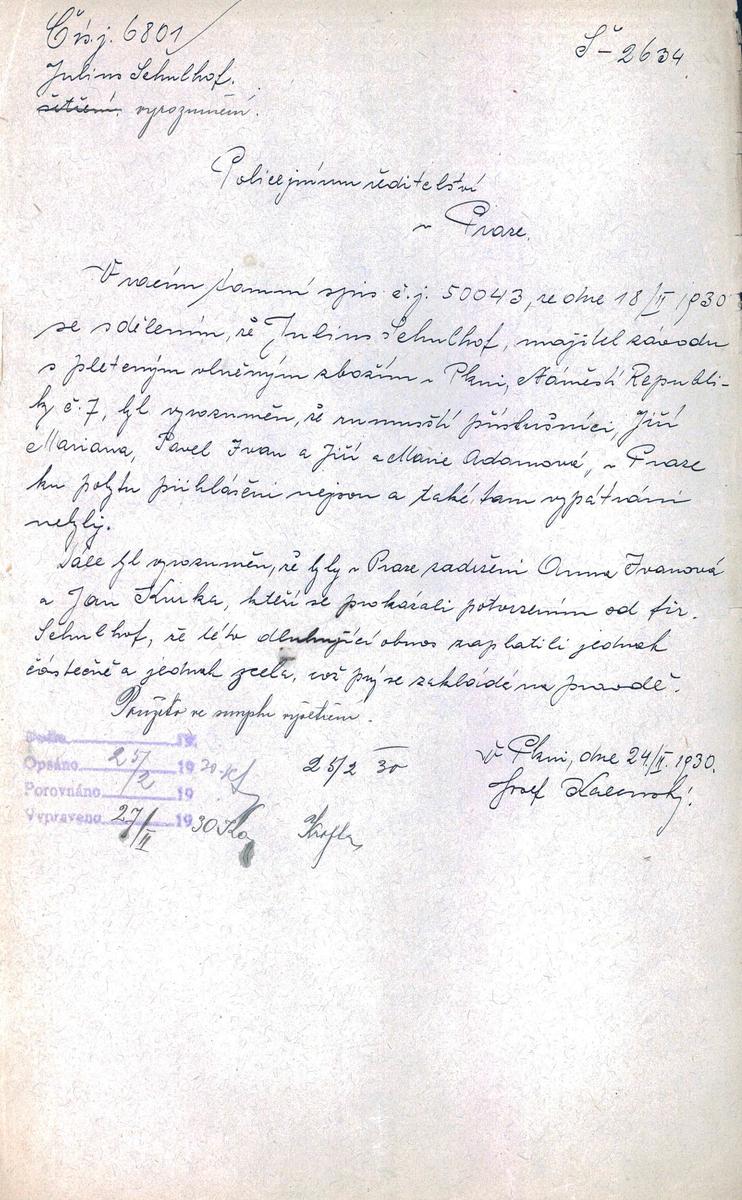 Čís.j. 6801
Š-2634
Julius Schulhof.
šetření. vyrozumění.
Policejnímu ředitelství
v Praze.
Vracím tamní spis č.j. 50043, ze dne 18/II 1930
se sdělením, že Julius Schulhof, majitel závodu
s pleteným vlněným zbožím v Plzni, Náměstí Republi-
ky č. 7, byl vyrozuměn, že rumunští příslušníci, Jiří
Mariana, Pavel Ivan a Jiří a Marie Adamová, v Praze
ku pobytu přihlášeni nejsou a také tam vypátráni
nebyli.
Dále byl vyrozuměn, že byly v Praze zadrženi Anna Ivanová
a Jan Kurka, kteří se prokázali potvrzením od fir.
Schulhof, že této dluhující obnos zaplatili jednak
částečně a jednak zcela, což prý se zakládá na pravdě.
Použito ve smyslu vyřízení.
Došlo 19
Opsáno 25/2 1930
Porovnáno 19
Vypraveno 27/II 1930
25/2 30
V Plzni, dne 24/II. 1930.
Josef